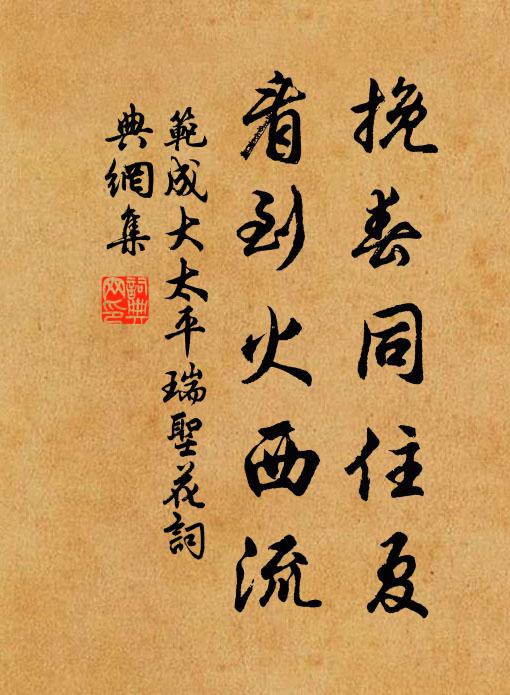 挽春同住夏
看到火西流
範成大太平瑞聖花詞
典網集
詞典網印